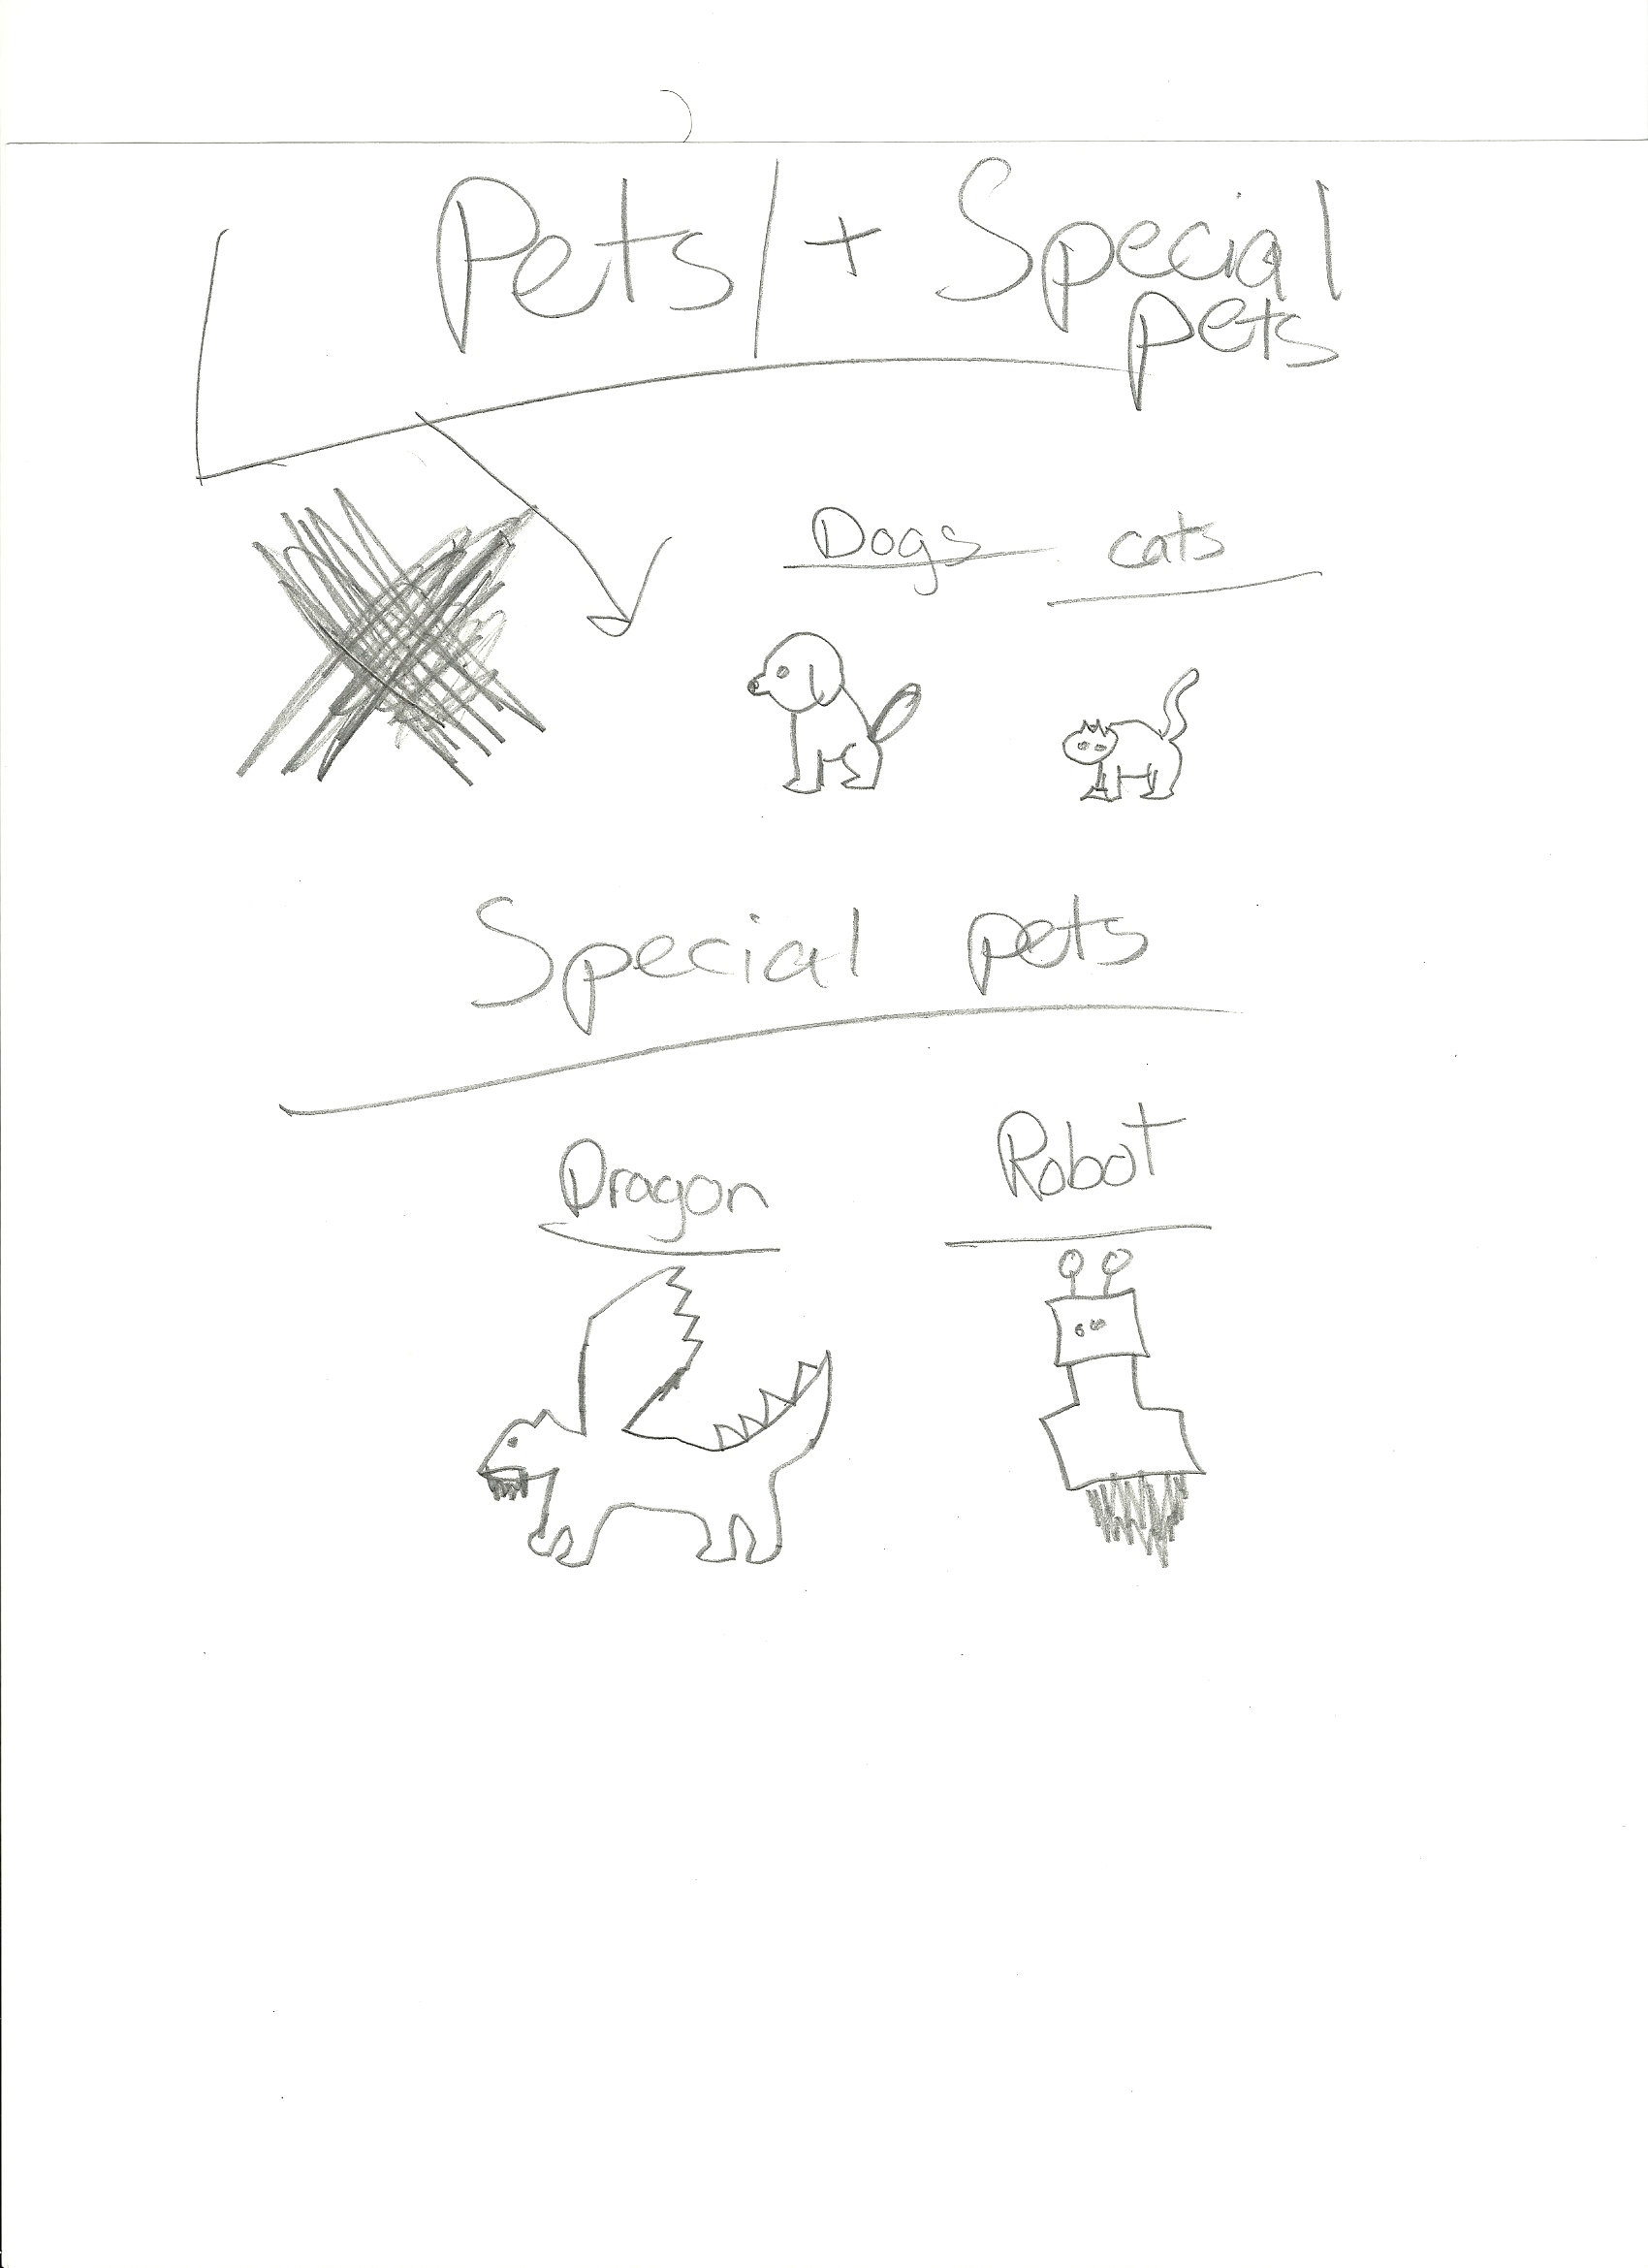 Pets + Special
pets
Dogs cats
Special pets
Dragon Robot